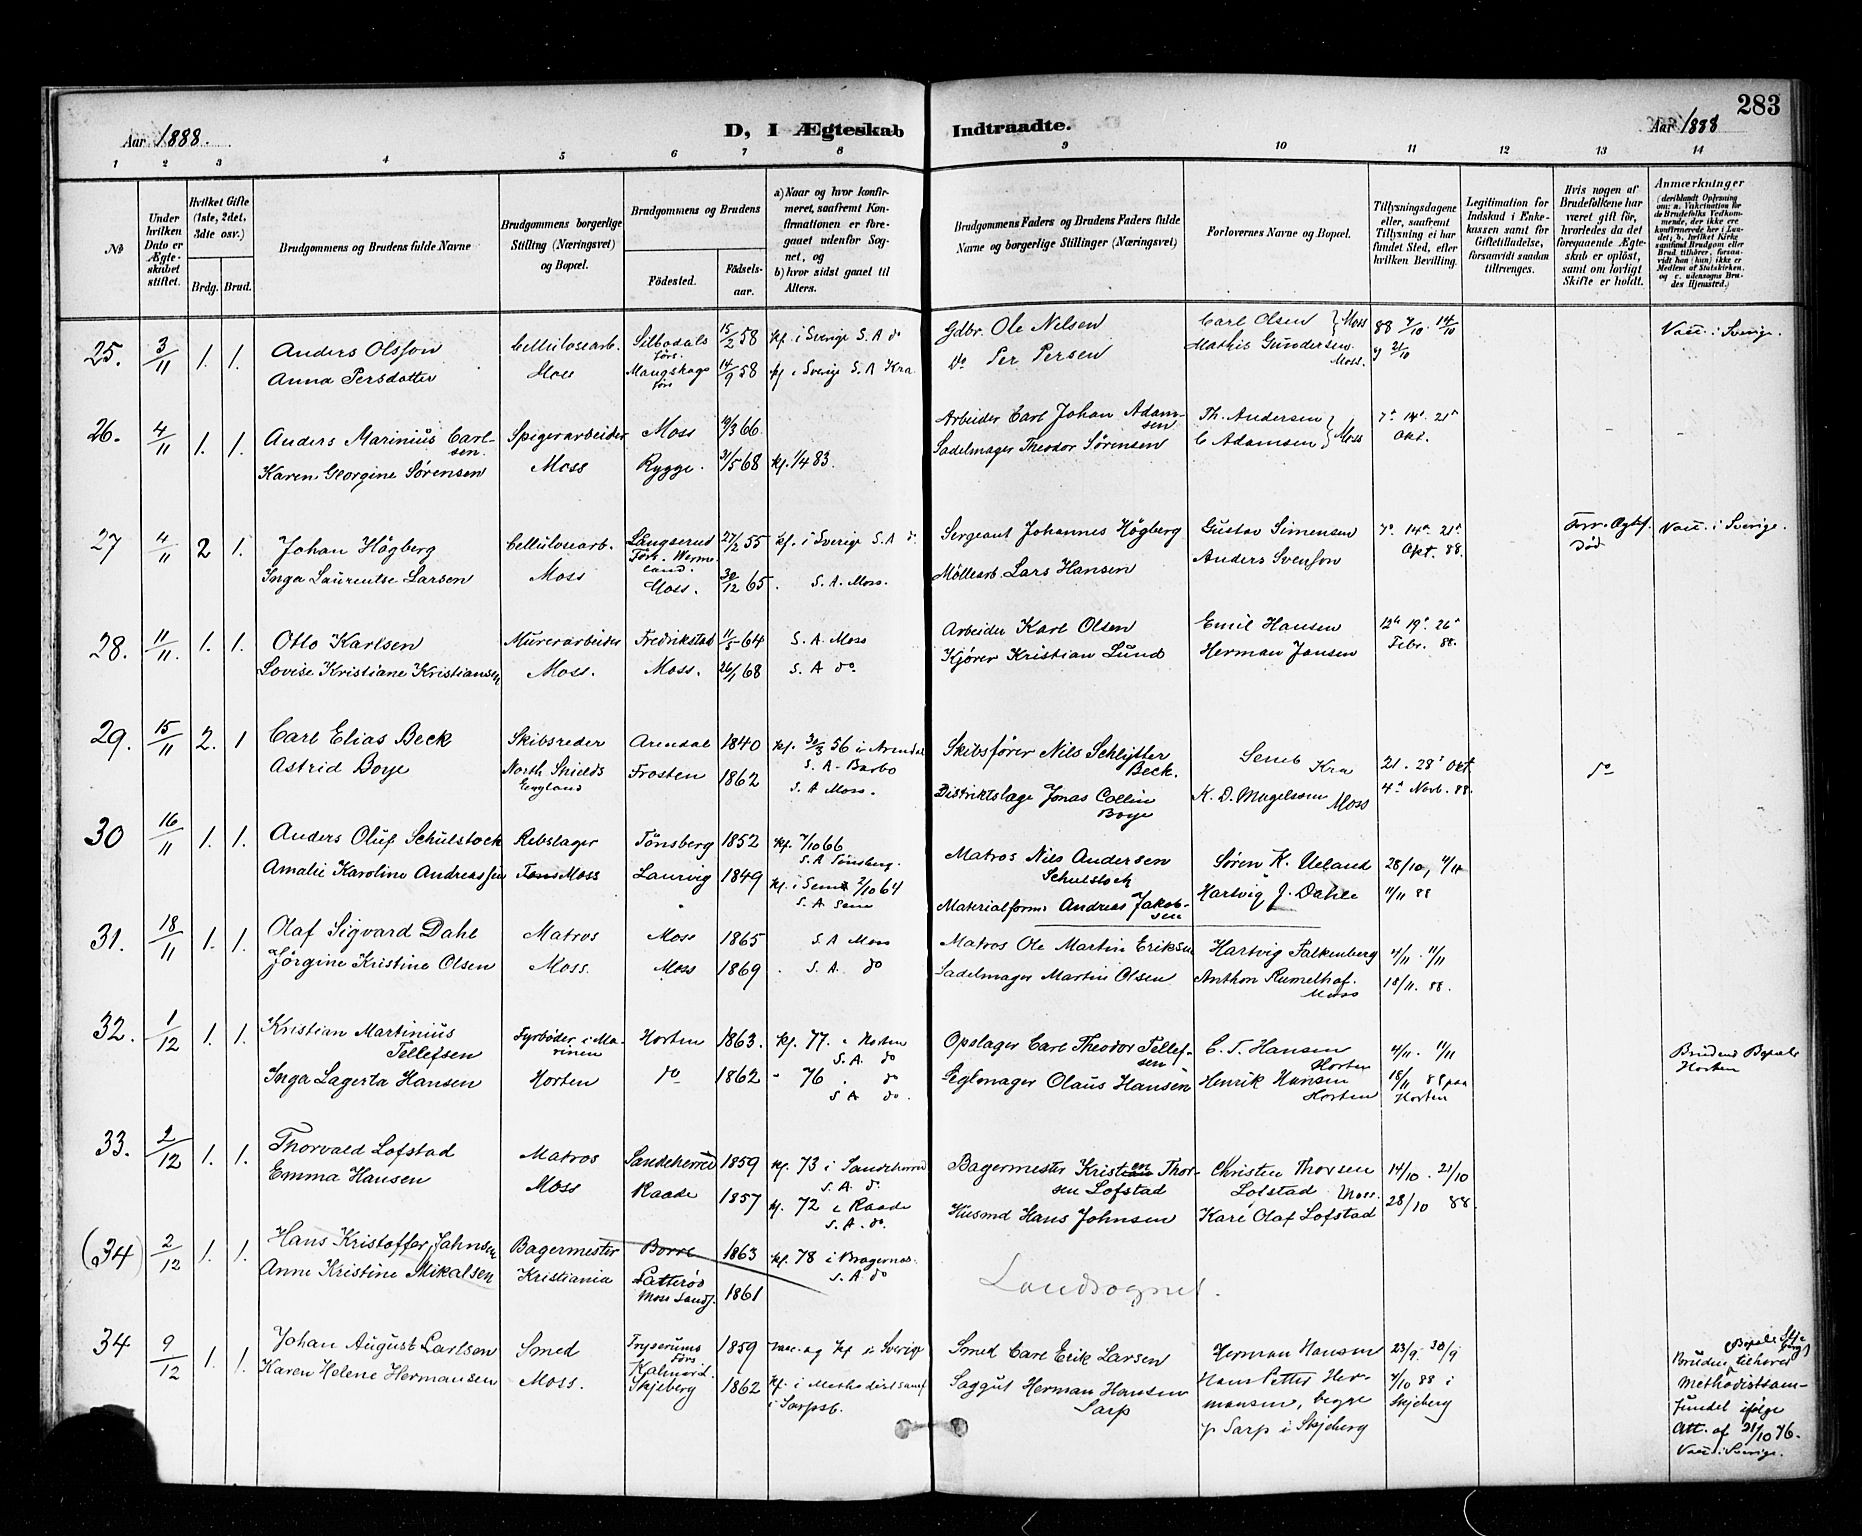 283
Aar 1888.
D, I Ægteskab Indtraadte.
Aar 1888
1 2 3 4 5 6 7 8 9 10 11 12 13 14
No
Under hvilken Dato er Ægteskabet stiftet.
Hvilket Gifte (1ste, 2det, 3dte osv.)
Brdg. Brud.
Brudgommens og Brudens fulde Navne
Brudgommens borgerlige Stilling (Næringsvei) og Bopæl.
Brudgommens og Brudens
Födested.
Födselsaar.
a) Naar og hvor konfirmeret, saafremt Konfirmationen er foregaaet udenfor Sognet, og
b) hvor sidst gaaet til Alters.
Brudgommens Faders og Brudens Faders fulde Navne og borgerlige Stillinger (Næringsvei)
Forlovernes Navne og Bopæl.
Tillysningsdagene eller, saafremt Tillysning ei har fundet Sted, efter hvilken Bevilling.
Legitimation for Indskud i Enkekassen samt for Giftetilladelse, forsaavidt saadan tiltrænges.
Hvis nogen af Brudefolkene har været gift för, hvorledes da det foregaaende Ægteskab er oplöst, samt om lovligt Skifte er holdt.
Anmærkninger (deriblandt Oplysning om: a. Vakcination for de Brudefolks Vedkommende, der ikke ere konfirmerede her i Landet; b. hvilket Kirkesamfund Brudgom eller Brud tilhörer, forsaavidt han (hun) ikke er Medlem af Statskirken, og c. udensogns Brudes Hjemsted.)
25. 3/11 1. 1. Anders Olsson Cellulosearb. Silbodals Förs. 15/2 58 kf. i Sverige S. A do Gdbr. Ole Nelsen Carl Olsen } Moss 88 7/10 14/10 Vacc. i Sverige.
Anna Persdotter Moss Mangskogs Förs 14/9 58 kf i Sverige S. A Kra Do Per Persen Mathis Gundersen Moss. g 21/10
26. 4/11 1. 1. Anders Marinius Carlsen. Spigerarbeider Moss 19/3 66 Arbeider Carl Johan Adamsen Th. Andersen } Moss 7d 14d 21d Okt.
Karen Georgine Sørensen Moss Rygge. 31/5 68 kf. 1/4 83. Sadelmager Theodor Sørensen C Adamsen
27 4/11 2 1. Johan Högberg Cellulosearb. Långserud Förs. Wermland. 27/2 55 kf. i Sverige S. A do Sergeant Johannes Högberg Gustav Simensen 7d 14de 21d Okt. 88. Forr. Ægtef. Død Vacc. i Sverige.
Inga Laurentse Larsen Moss Moss. 30/12 65. S. A. Moss. Møllearb. Lars Hansen Anders Svensson
28. 11/11. 1. 1. Otto Karlsen Murerarbeider Fredrikstad 11/5 64 S. A. Moss Arbeider Karl Olsen Emil Hansen 12te 19d 26d Febr. 88.
Lovise Kristiane Kristiansen Moss. Moss. 26/1 68 S. A do. Kjører Kristian Lund Herman Jansen
29. 15/11 2. 1 Carl Elias Beck Skibsreder Arendal 1840 kf. 30/3 56 i Arendal S. A. Barbo Skibsfører Nils Schlytter Beck. Kra 21. 28d Okt do
Astrid Boye North Shields England Frosten 1862 S. A Moss. Distriktslæge Jonas Collin Boye K. D. Magelssen Moss 4d Novb. 88.
30 16/11 1. 1. Anders Oluf Schulstock Rebslager Tönsberg 1852 kf. 7/10 66 S. A Tönsberg. Matros Nils Andersen Schulstock Søren K. Ueland 28/10, 4/11
Amalie Karoline Andreassen Moss Laurvig 1849 kf. i Sem 2/10 64 S. A. Sem Materialform: Andreas Jakobsen Hartvig J. Dahle 11/11 88
31. 18/11 1. 1. Olaf Sigvard Dahl Matros Moss 1865 S. A Moss Matros Ole Martin Eriksen Hartvig Falkenberg 4/11. 11/11
Jörgine Kristine Olsen Moss. Moss 1869. S. A. do Sadelmager Martin Olsen Anthon Rumelhof. Moss 18/11. 88.
32. 1/12 1. 1. Kristian Martinius Tellefsen Fyrbøder i Marinen Horten 1863. kf. 77. i Horten S. A. do Opslager Carl Theodor Tellefsen C. T. Hansen Horten 4/11. 11/11 Brudens Bopæl Horten
Inga Lagerta Hansen Horten do 1862 - 76. do S. A do. Seglmager Olaus Hansen Henrik Hansen Horten 18/11 88 paa Horten
33. 2/12 1. 1. Thorvald Lofstad Matros Sandeherred 1859 kf. 73 i Sandeherred S. A. do. Bagermester Kristian Thorsen Lofstad Christen Thorsen Lofstad Moss. 14/10. 21/10
Emma Hansen Moss Raade 1857 kf. 72 i Raade S. A. do. Husmd Hans Johnsen Kare Olaf Lofstad 28/10 88.
(34) 2/12 1. 1. Hans Kristoffer Jahnsen Bagermester Borre 1863 kf. 78 i Bragernæs. S. A do
Anne Kristine Mikalsen Kristiania Latterød Moss Lands. 1861 Landsognet.
34 9/12 1. 1. Johan August Carlson Smed Fryserums Förs Kalmar l. 1859 vac. og kf i Sverige Smed Carl Erik Larsen Herman Hansen 23/9. 30/9 (Bopæl Skjeberg) Bruden tilhører
Karen Helene Hermansen Moss. Skjeberg 1862 kf. i Methodistsamf i Sarpsb. Saggut Herman Hansen Sarp Hans Petter Hermansen, begge p Sarp i Skjeberg 7/10 88 i Skjeberg Methodistsamfundet ifølge Att. af 21/10 76. Vacc. i Sverige.